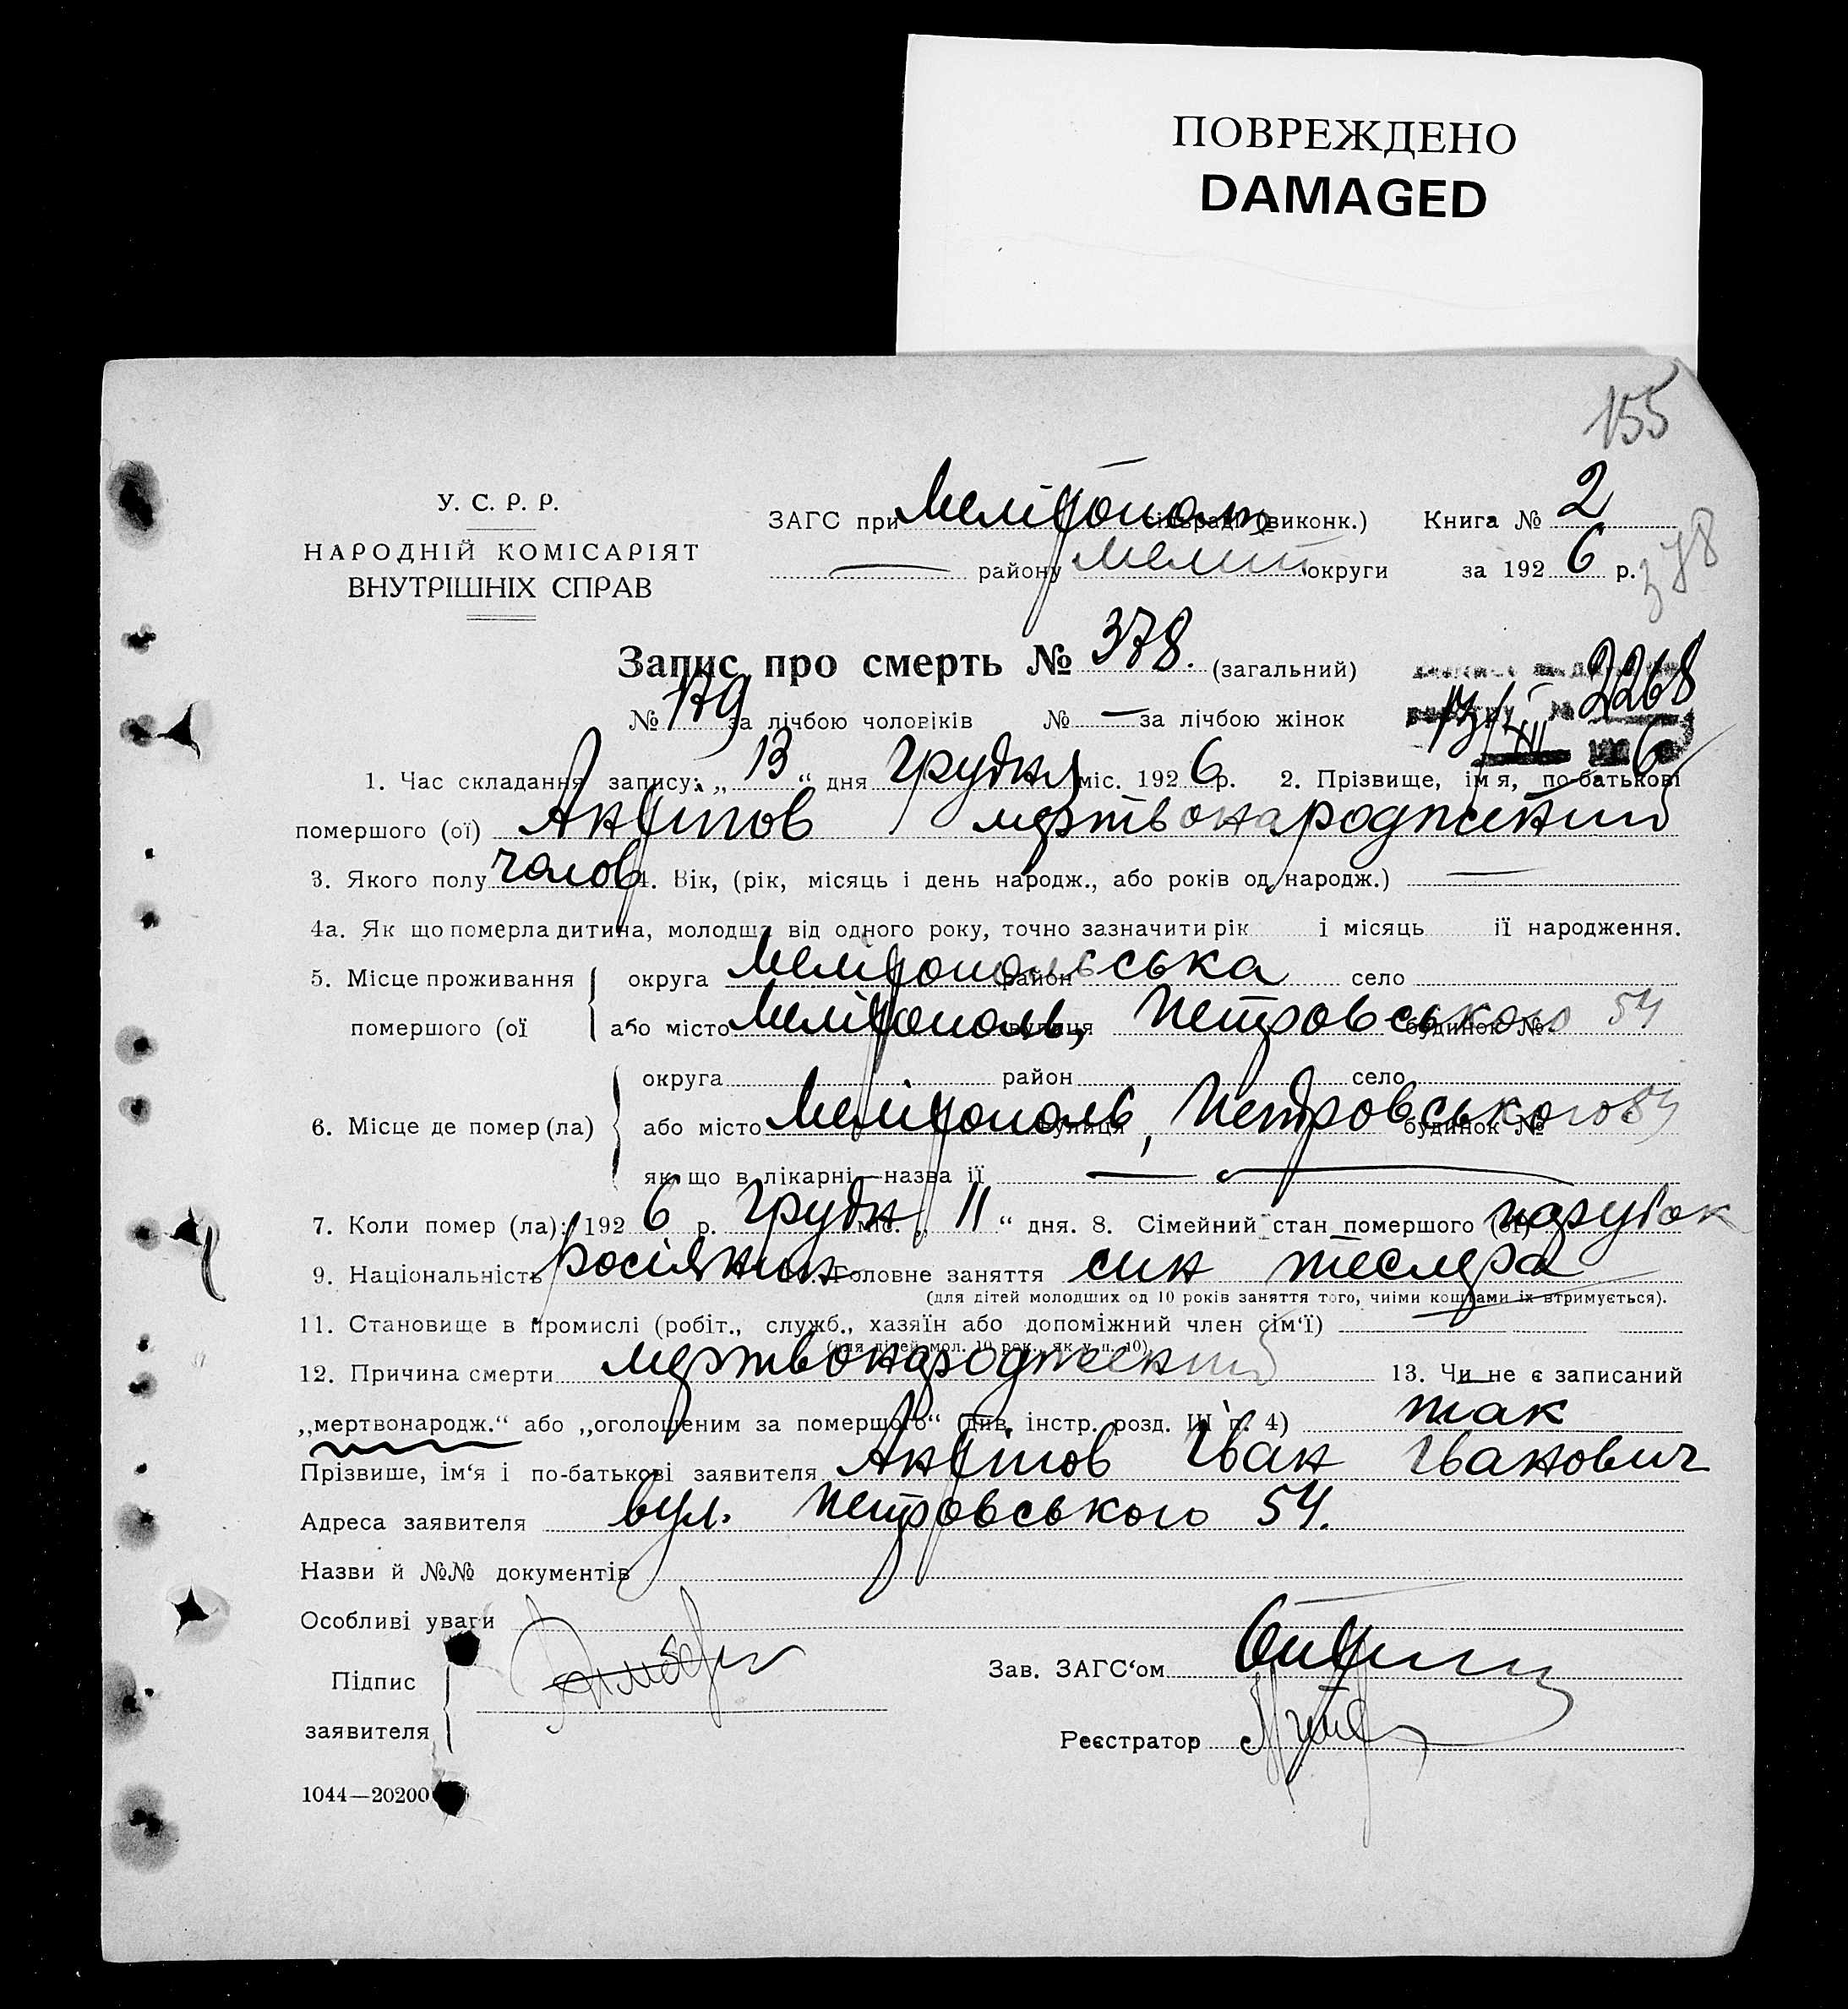 ПОВРЕЖДЕНО
DAMAGED
155
У. С. Р. Р.
НАРОДНІЙ КОМІСАРІЯТ
ВНУТРІШНІХ СПРАВ
ЗАГС при сільраді (виконк.) Книга № 2
— району Меліт округи за 1926 р.
378
Запис про смерть № 378. (загальний)
№ 179 за лічбою чоловіків № — за лічбою жінок
2268
1. Час складання запису: „13“ дня Грудня міс. 1926 р. 2. Прізвище, ім'я, по-батькові
помершого (ої) мертвонароджений
3. Якого полу чолов 4. Вік, (рік, місяць і день народж., або років од народж.) —
4а. Як що померла дитина, молодша від одного року, точно зазначити рік і місяць ії народження.
5. Місце проживання округа Мелітопольська район село
помершого (ої або місто Мелітополь, вулиця Петровського будинок № 54
округа район село
6. Місце де помер (ла) або місто Мелітополь, вулиця Петровського будинок № 54
як що в лікарні—назва ії — —
7. Коли помер (ла): 1926 р. Грудн міс. „11“ дня. 8. Сімейний стан помершого (ої) парубок
9. Національність росіянин Головне заняття син тесляра
(для дітей молодших од 10 років заняття того, чиїми коштами їх втримується).
11. Становище в промислі (робіт., служб., хазяїн або допоміжний член сім'ї)
(для дітей мол. 10 рок., як у п. 10)
12. Причина смерти мертвонароджений 13. Чи не є записаний
„мертвонародж.“ або „оголошеним за померщого“ (див. інстр. розд. III п. 4) так
Прізвише, ім'я і по-батькові заявителя Іван Іванович
Адреса заявителя вул. Петровського 54.
Назви й №№ документів
Особливі уваги
Підпис
заявителя
Зав. ЗАГС'ом
Реєстратор
1044—20200